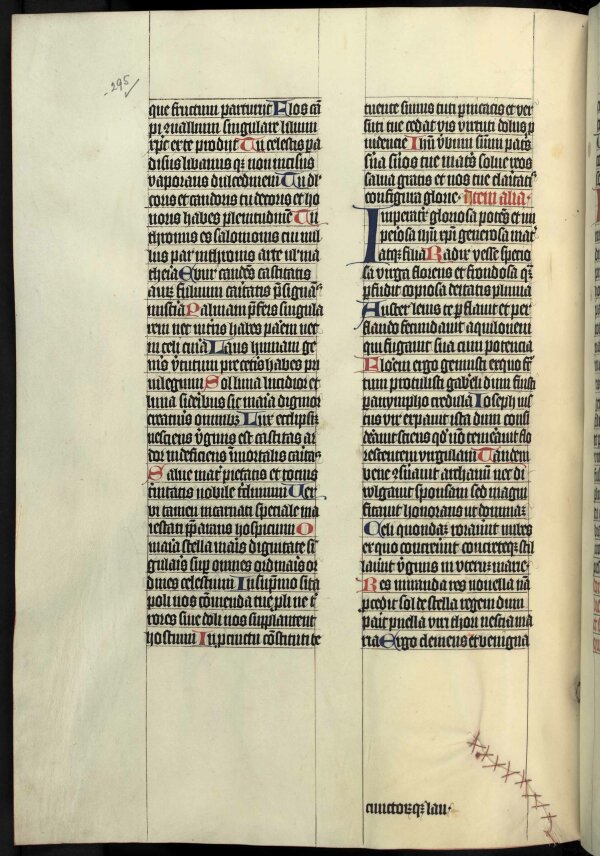 295
que fructum parturiit Flos cā
pi cōuallium singulare lilium
xp̄c ex te prodiit Tu celestis pa
disus libanus q̄ʒ non incisus
vaporans dulcedinem Tu dul
coris et candoris tu decoris et ho
noris habes plenitudinē Tu
thronus es salomonis cui nul
lus par in throno arte ul̄ ma
theia Ebur candēs castitatis
aurū fuluum caritatis p̄signās
misteria Palmam p̄fers singula
rem nec in tris habes parem nec
in celi curia Laus humani ge
nis v̄tutum pre ceteris habes pri
uilegium Sol luna lucidior et
luna sideribus sic maria dignior
creaturis omnibꝰ Lux eclipsim
nesciens v̄ginis est castitas ar
dor indeficiens īmortalis caritas
Salue mater pietatis et tocius
trinitatis nobile triclinium Ver
bi tamen incarnati speciale ma
iestati p̄parans hospicium O
maria stella maris dignitate si
gularis sup omnes ordinaris or
dines celestium In sup̄mo sita
poli nos cōmenda tue p̄li ne t̄
rores siue doli nos supplantent
hostium In procinctu cōstituti te
tuente simus tuti p̄uicatis et ver
suti tue cedat vis virtuti dolus p
uidencie Ih̄u v̄bum sūmi patr̄s
serua seruos tue matr̄s solue reos
salua gratis et nos tue claritatis
configura glorie· Item alia·
Imperatrix gloriosa potēs et im
periosa ih̄u xp̄i generosa mat̄
atqʒ filia Radix yesse specio
sa virga florens et frondosa q̄ʒ
p̄fudit copiosa deitatis gratia
Auster lenis te p̄flauit et per
flando fecundauit aquilonem
qui fugauit sua cum potencia
Florem ergo genuisti ex quo fr̄
tum protulisti gabrieli dum fuisti
paranympho credula Ioseph ius
tus vir expauit ista dum consi
derauit sciens q̄d nō remearit flo
rescentem virgulam Tandem
bene reseruauit archanum nec di
uulgauit sponsam sed magni
ficauit honorans ut dominaʒ
Celi quondaʒ rorauerunt nubes
ex quo concreuerunt concreteqʒ stil
lauerunt v̄ginis in vterum marie
Res miranda res nouella nā
p̄cedit sol de stella regem dum
parit puella viri thori nescia ma
ria Ergo clemens et benigna
cunctorqʒ lau·